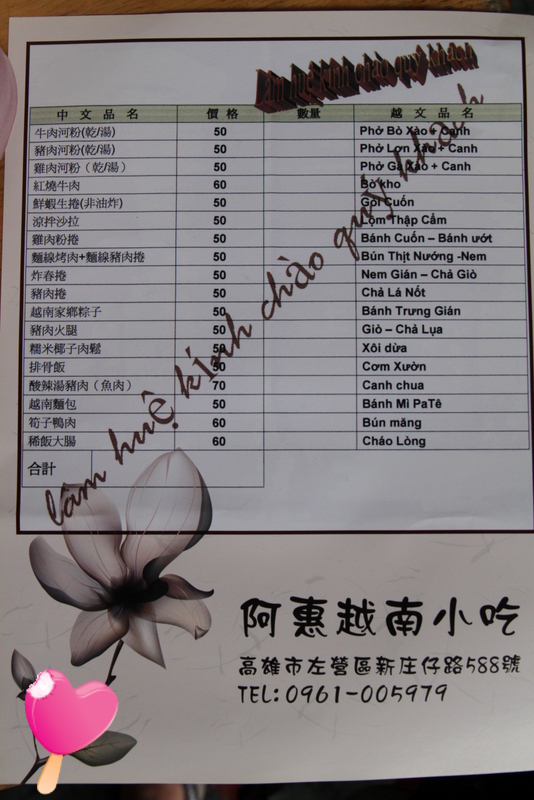 lâm huệ kính chào quý khách
中文品名 價格 數量 越文品名
牛肉河粉(乾/湯) 50 Phở Bò Xào + Canh
豬肉河粉(乾/湯) 50 Phở Lợn Xào + Canh
雞肉河粉(乾/湯) 50 Phở Gà Xào + Canh
紅燒牛肉 60 Bò kho
鮮蝦生捲(非油炸) 50 Gỏi Cuốn
涼拌沙拉 50 Lộm Thập Cẩm
雞肉粉捲 50 Bánh Cuốn – Bánh ướt
麵線烤肉+麵線豬肉捲 50 Bún Thịt Nướng -Nem
炸春捲 50 Nem Gián – Chả Giò
豬肉捲 50 Chả Lá Nốt
越南家鄉粽子 50 Bánh Trưng Gián
豬肉火腿 50 Giò – Chả Lụa
糯米椰子肉鬆 50 Xôi dừa
排骨飯 50 Cơm Xườn
酸辣湯豬肉(魚肉) 70 Canh chua
越南麵包 50 Bánh Mì PaTê
筍子鴨肉 60 Bún măng
稀飯大腸 60 Cháo Lòng
合計
lâm huệ kính chào quý khách
阿惠越南小吃
高雄市左營區新庄仔路588號
TEL:0961-005979